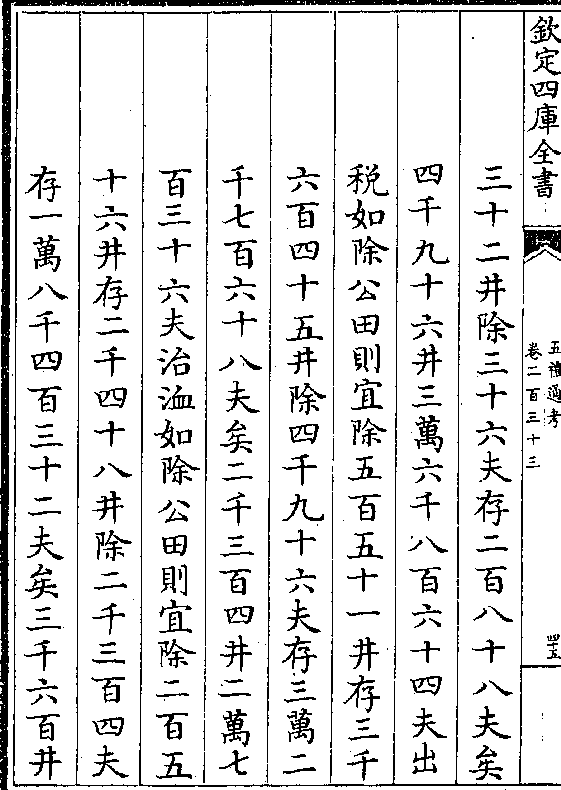 欽定四庫全書
五禮通考
卷二百三十三
四十五
三十二井除三十六夫存二百八十八夫矣
四千九十六井三萬六千八百六十四夫出
税如除公田則宜除五百五十一井存三千
六百四十五井除四千九十六夫存三萬二
千七百六十八夫矣二千三百四井二萬七
百三十六夫治洫如除公田則宜除二百五
十六井存二千四十八井除二千三百四夫
存一萬八千四百三十二夫矣三千六百井